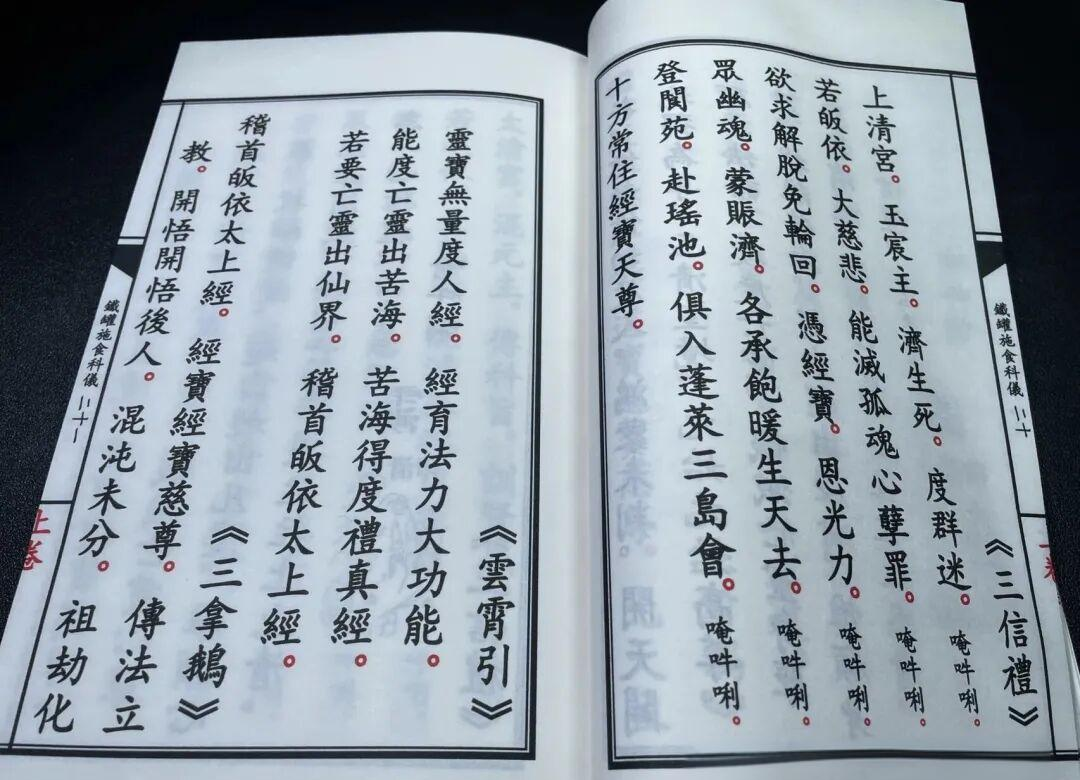 《三信禮》
上清宮。玉宸主。濟生死。度群迷。唵吽唎。
若皈依。大慈悲。能滅孤魂心孽罪。唵吽唎。
欲求解脫免輪回。憑經寶。恩光力。唵吽唎。
眾幽魂。蒙賑濟。各承飽暖生天去。唵吽唎。
登閬苑。赴瑤池。俱入蓬萊三島會。唵吽唎。
十方常住經寶天尊。
鐵罐施食科儀 二十
《雲霄引》
靈寶無量度人經。經育法力大功能。
能度亡靈出苦海。苦海得度禮真經。
若要亡靈出仙界。稽首皈依太上經。
《三拿鵝》
稽首皈依太上經。經寶經寶慈尊。傳法立
教。開悟開悟後人。混沌未分。祖劫化
鐵罐施食科儀 二十一
上卷